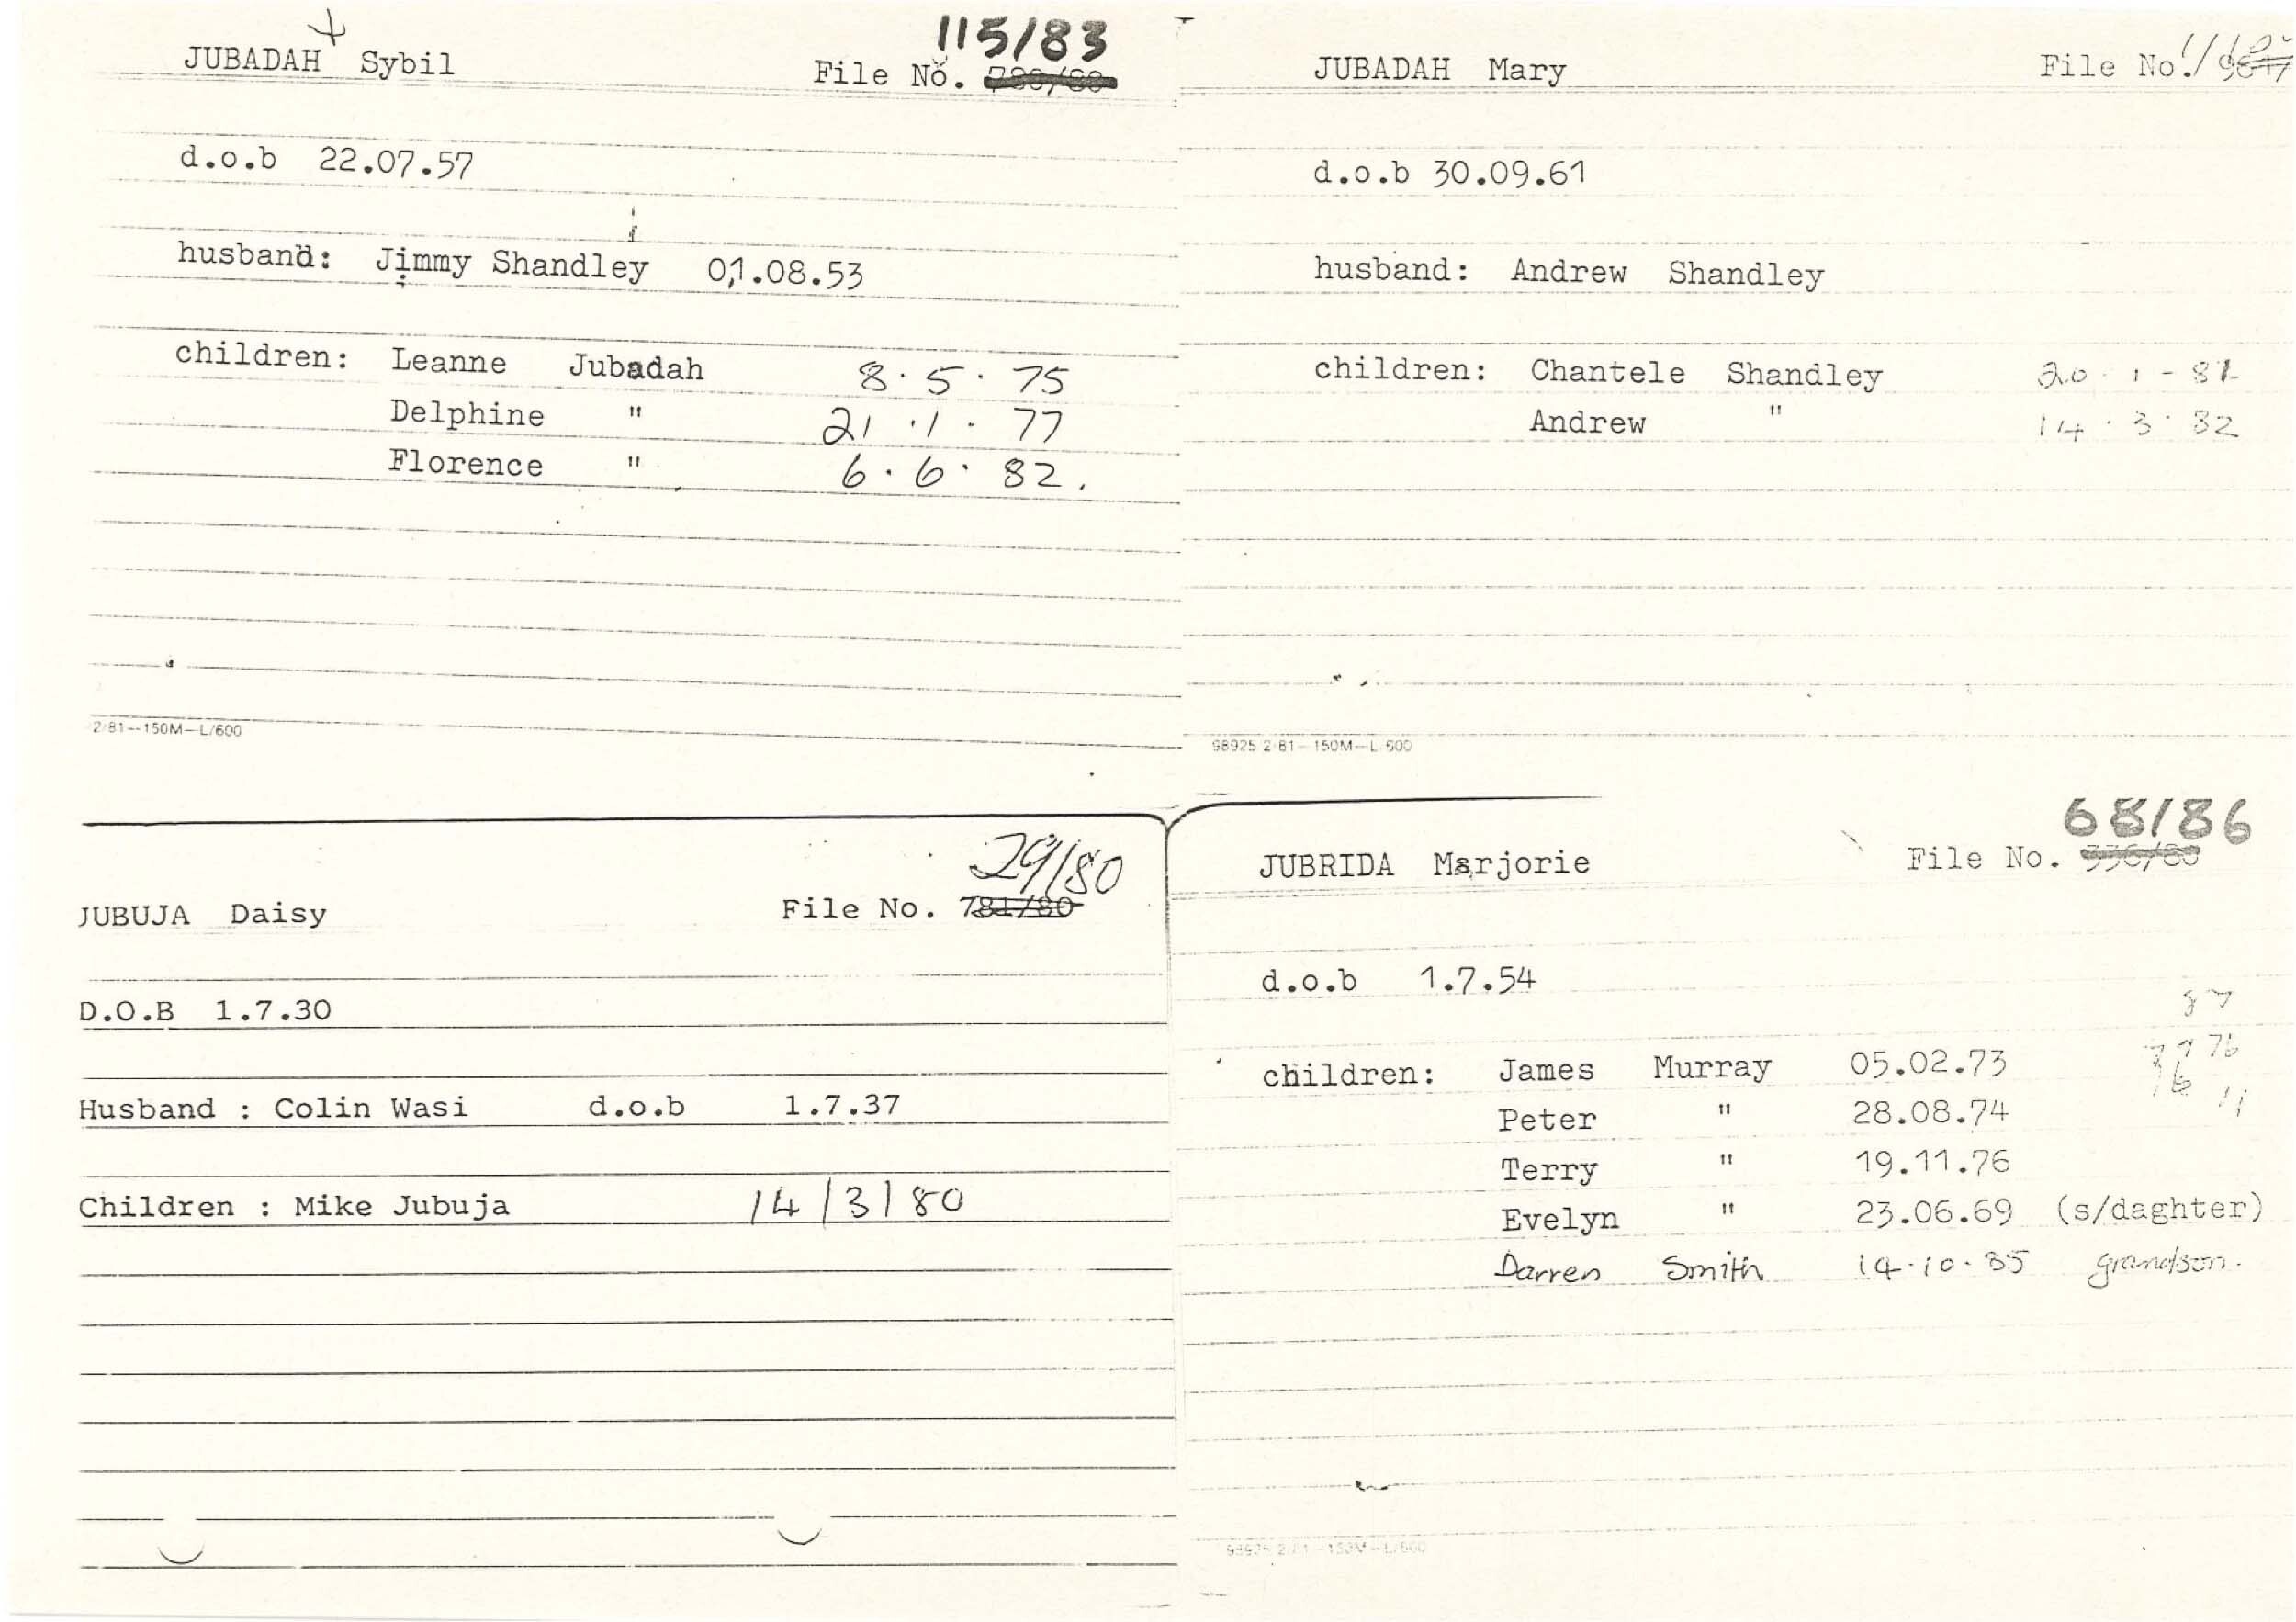 115/83
JUBADAH Sybil File No.
d.o.b 22.07.57
husband: Jimmy Shandley 01.08.53
children: Leanne Jubadah 8.5.75
Delphine " 21.1.77
Florence " 6.6.82.
2/81—150M—L/600
JUBADAH Mary File No.
d.o.b 30.09.61
husband: Andrew Shandley
children: Chantele Shandley
Andrew " 14.3.82
98925 2/81—150M—L/600
29/80
JUBUJA Daisy File No. 781/80
D.O.B 1.7.30
Husband : Colin Wasi d.o.b 1.7.37
Children : Mike Jubuja 14/3/80
68/86
JUBRIDA Marjorie File No. 336/80
d.o.b 1.7.54
children: James Murray 05.02.73
Peter " 28.08.74
Terry " 19.11.76
Evelyn " 23.06.69 (s/daghter)
Darren Smith 14.10.85 grandson.
98925 2/81—150M—L/600